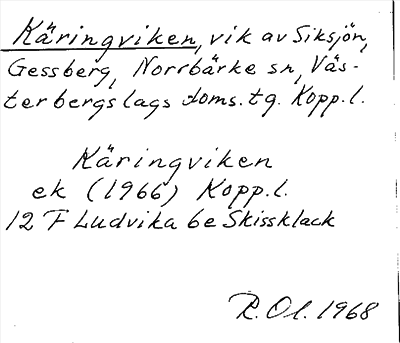 Käringviken, vik av Siksjön,
Gessberg, Norrbärke sn, Väs-
terbergslags doms.tg. Kopp.l.
Käringviken
ek (1966) Kopp.l.
12 F Ludvika 6e Skissklack
R.Ol. 1968